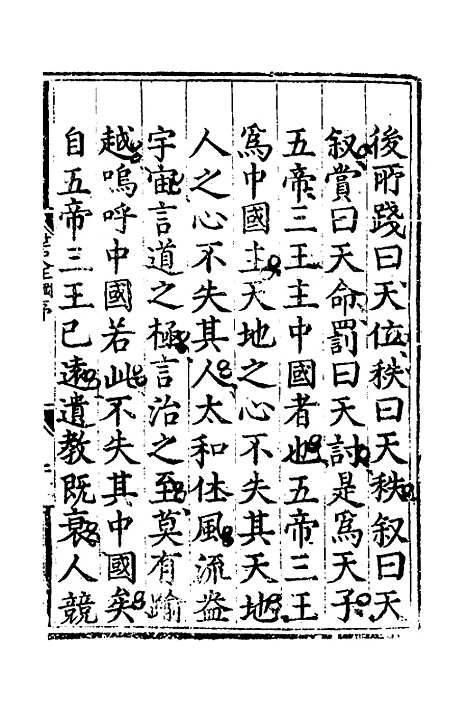 後所踐曰天位秩曰天秩叙曰天
叙賞曰天命罰曰天討是爲天子
五帝三王主中國者也五帝三王
爲中國主天地之心不失其天地
人之心不失其人太和休風流益
宇宙言道之極言治之至莫有踰
越嗚呼中國若此不失其中國矣
自五帝三王已遠遺教既衰人競